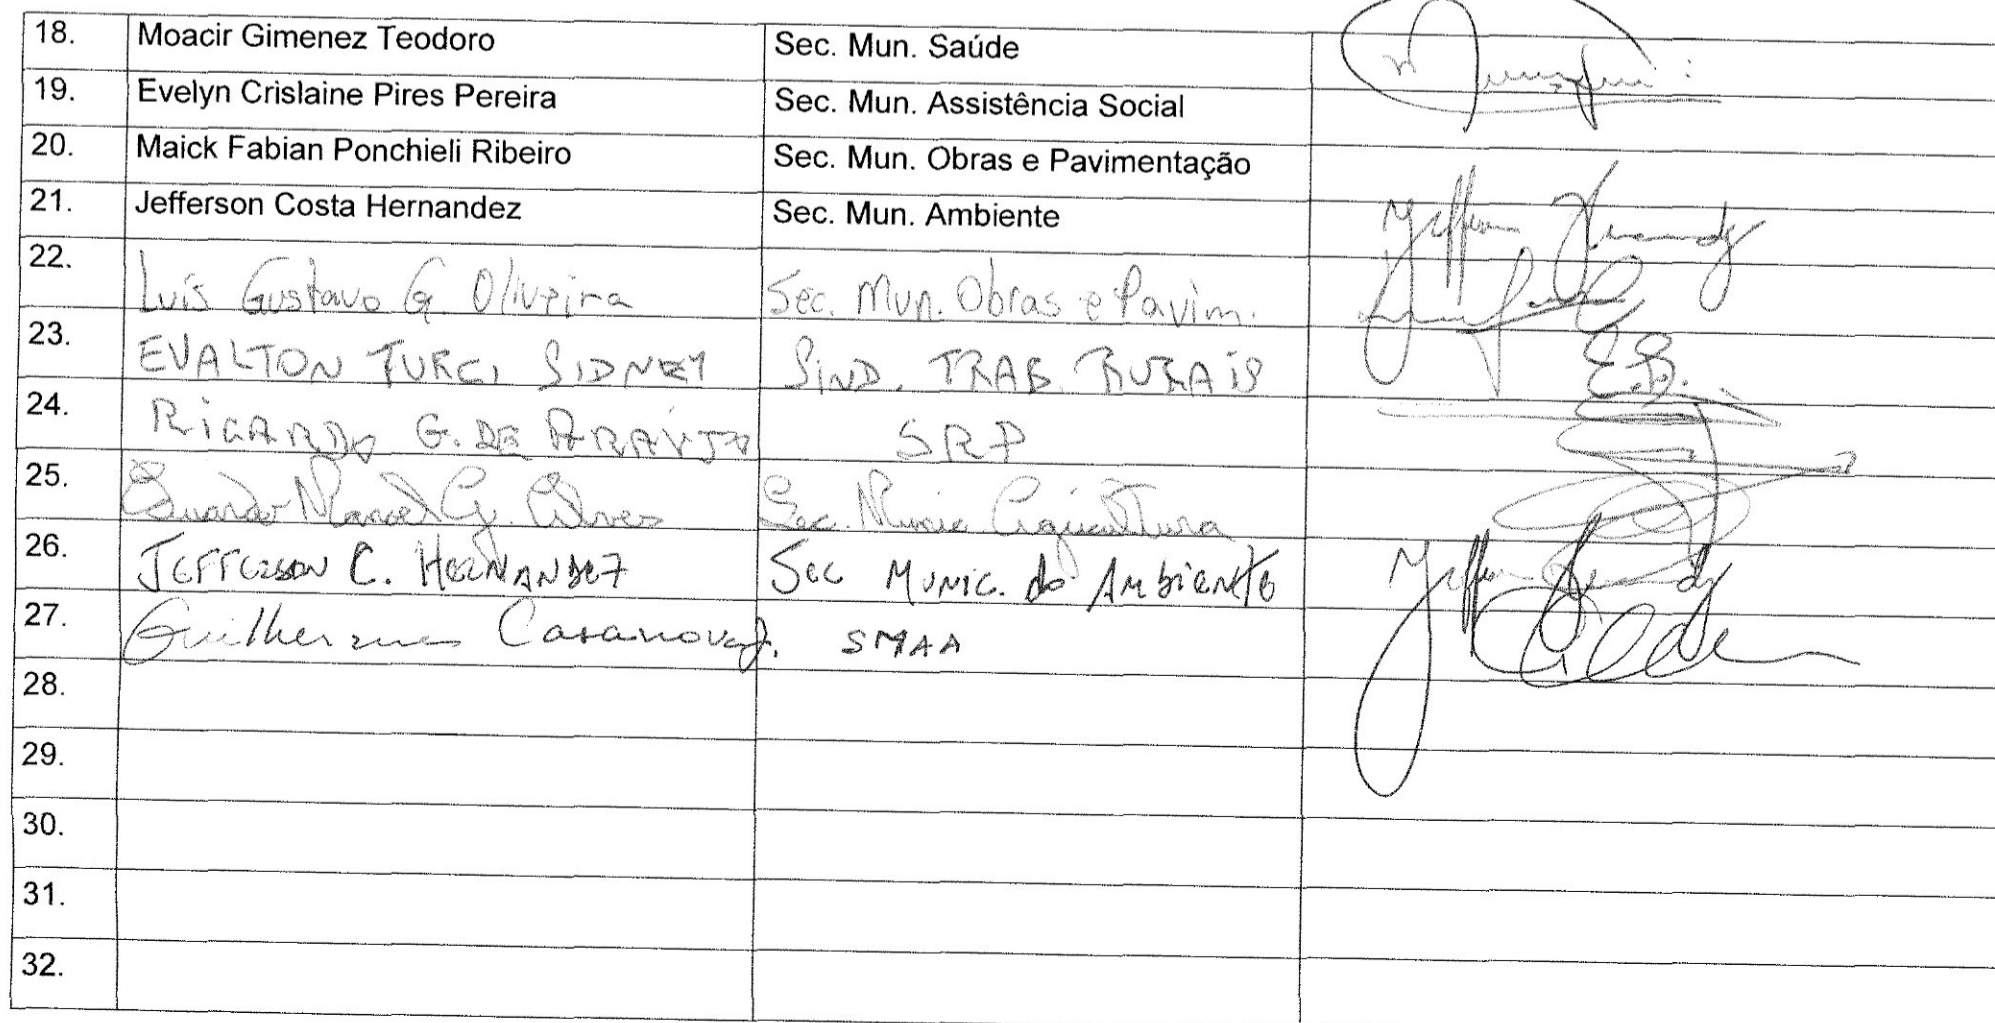 18. Moacir Gimenez Teodoro Sec. Mun. Saúde
19. Evelyn Crislaine Pires Pereira Sec. Mun. Assistência Social
20. Maick Fabian Ponchieli Ribeiro Sec. Mun. Obras e Pavimentação
21. Jefferson Costa Hernandez Sec. Mun. Ambiente
22. Luís Gustavo G. Oliveira Sec. Mun. Obras e Pavim.
23. EVALTON TURCI SIDNEY SIND. TRAB. RURAIS
24. RICARDO G. DE ARAÚJO SRP
25. Eduardo Manoel G. Alves Sec. Agricultura
26. JEFFERSON C. HERNANDEZ Sec Munic. do Ambiente
27. Guilherme Casanova Jr. SMAA
28.
29.
30.
31.
32.